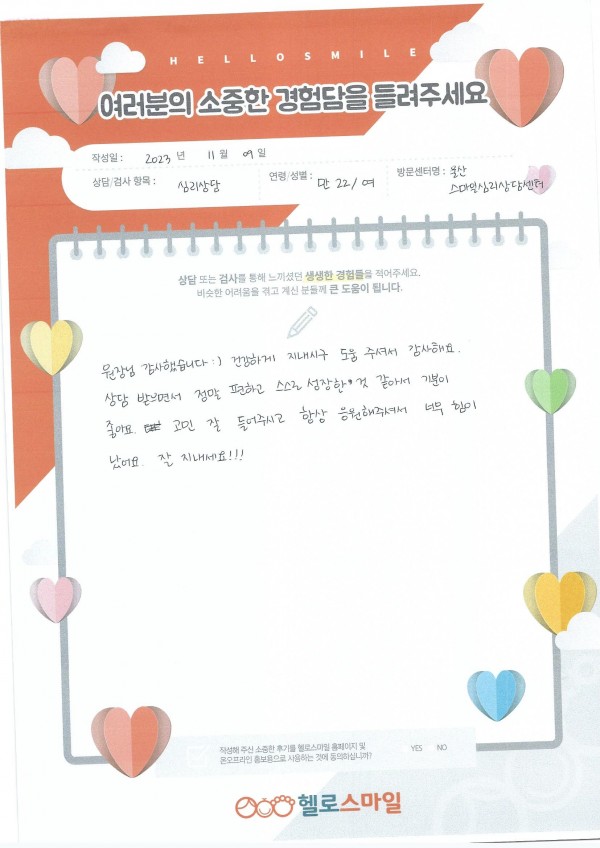 HELLOSMILE
여러분의 소중한 경험담을 들려주세요
작성일 : 2023 년 11 월 09 일
상담/검사 항목 : 심리상담 연령/성별 : 만 22/ 여 방문센터명 : 목산
스마일심리상담센터
상담 또는 검사를 통해 느끼셨던 생생한 경험들을 적어주세요.
비슷한 어려움을 겪고 계신 분들께 큰 도움이 됩니다.
원장님 감사했습니다 :) 건강하게 지내시구 도움 주셔서 감사해요.
상담 받으면서 정말 편하고 스스로 성장한 것 같아서 기분이
좋아요. 고민 잘 들어주시고 항상 응원해주셔서 너무 힘이
났어요. 잘 지내세요!!!
작성해 주신 소중한 후기를 헬로스마일 홈페이지 및
온오프라인 홍보용으로 사용하는 것에 동의하십니까? YES NO
헬로스마일